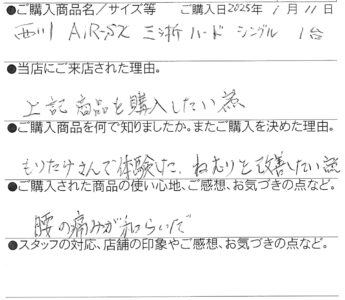 ●ご購入商品名／サイズ等　ご購入日2025年 1月11日
西川 AiR-SX 三つ折 ハード シングル 1台
●当店にご来店された理由。
上記商品を購入したい為
●ご購入商品を何で知りましたか。またご購入を決めた理由。
もりたけさんで体験した、ねむりを改善したい為
●ご購入された商品の使い心地、ご感想、お気づきの点など。
腰の痛みが和らいだ
●スタッフの対応、店舗の印象やご感想、お気づきの点など。